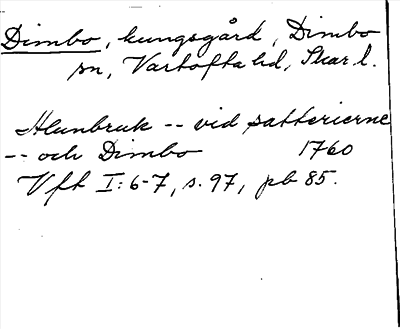 Dimbo, kungsgård, Dimbo
sn, Vartofta hd, Skar.l.
Alunbruk -- vid satterierne
-- och Dimbo 1760
Vft I:6-7, s. 97, pb 85.